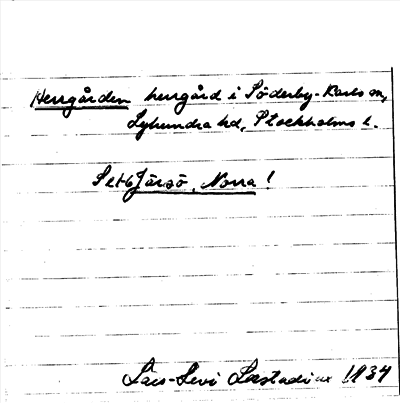 Herrgården herrgård i Söderby-Karls sn,
Lyhundra hd, Stockholms l.
Se Järsö, Norra!
Lars-Levi Læstadius 1934